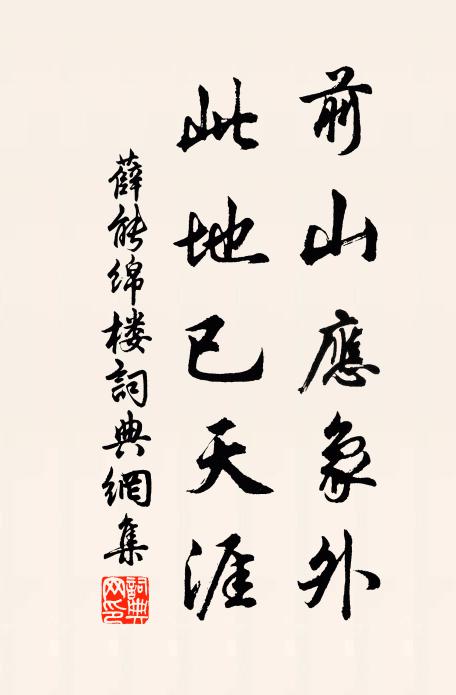 前山應象外
此地已天涯
薛能綿楼詞典網集
詞典網印